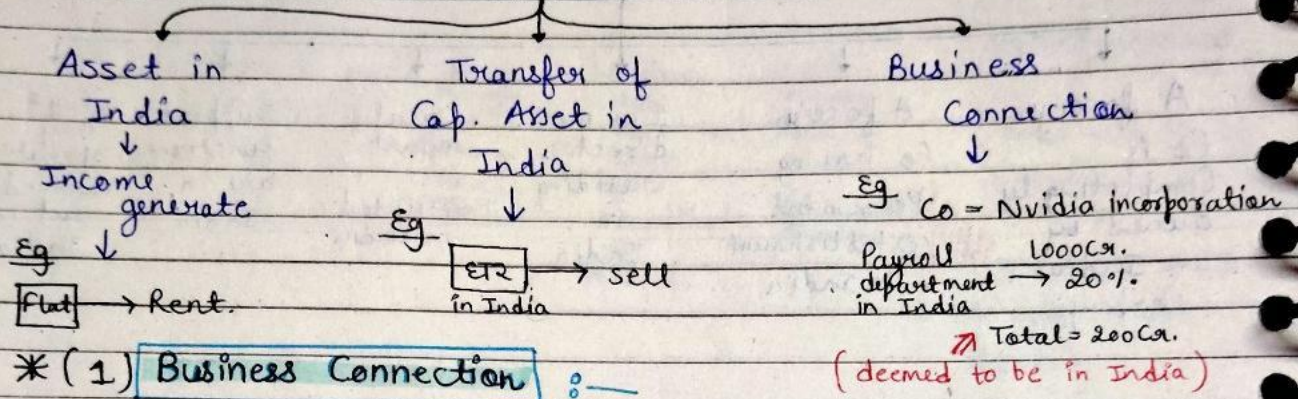 Asset in
India
Income
generate
Eg
Flat → Rent.
Transfer of
Cap. Asset in
India
Eg
घर → sell
in India
Business
Connection
Eg Co = Nvidia incorporation
Payroll 1000Cr.
department → 20%.
in India
Total = 200Cr.
(deemed to be in India)
* (1) Business Connection :—